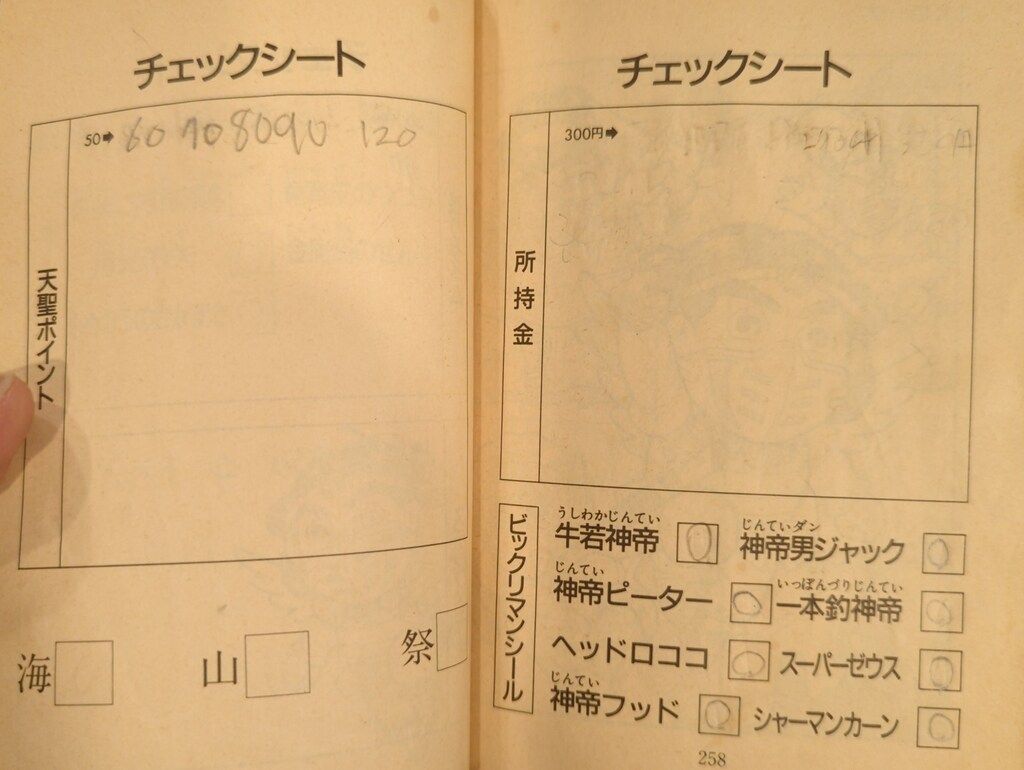 チェックシート
天聖ポイント
50➡ 60 70 80 90 120
海
山
祭
チェックシート
所持金
300円➡
ビックリマンシール
うしわかじんてい
牛若神帝
じんていダン
神帝男ジャック
じんてい
神帝ピーター
いっぽんづりじんてい
一本釣神帝
ヘッドロココ
スーパーゼウス
じんてい
神帝フッド
シャーマンカーン
258